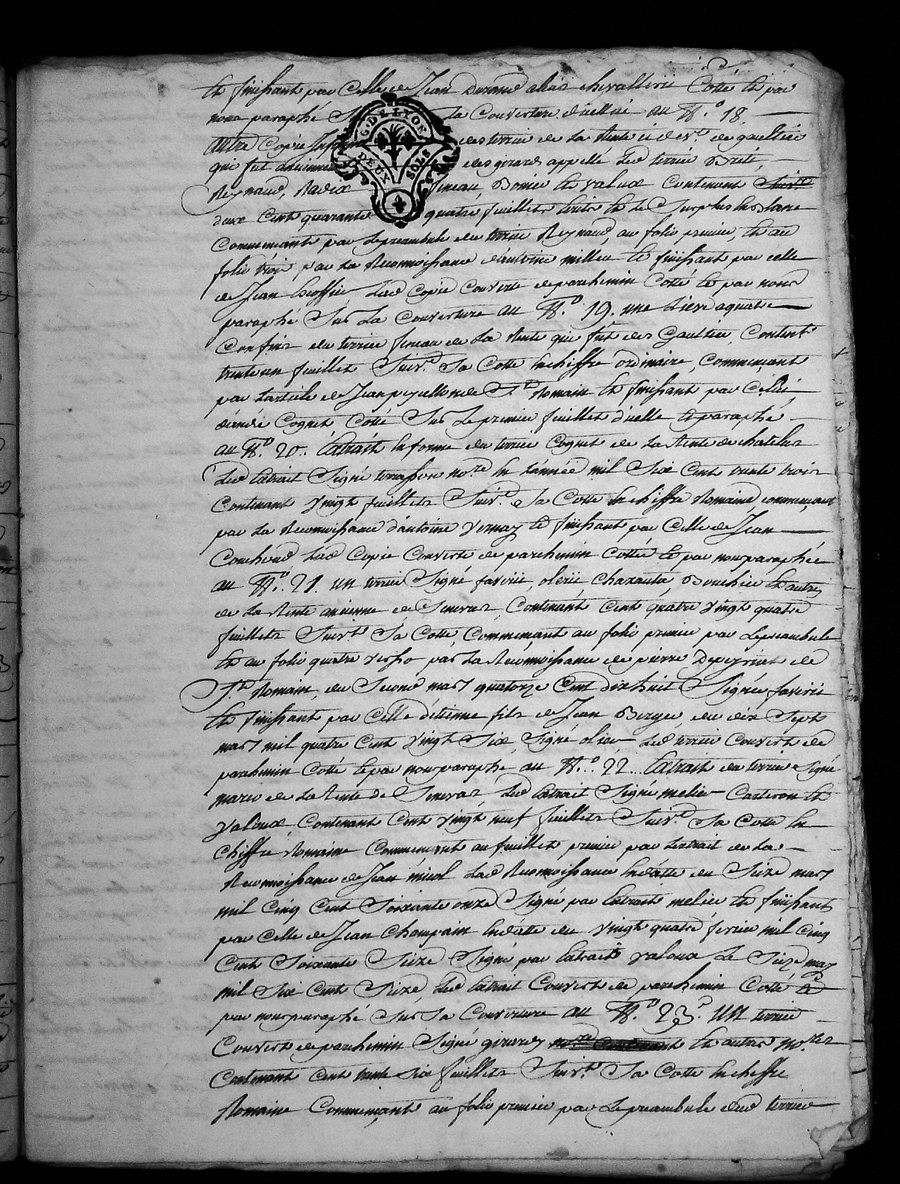 et finissant par celle de Jean Durand alias chevallerie Cotté et par
nous paraphé Sur la Couverture d'icelle au N.o 18
G. DE LYON
DEUX SOLS
Autre Copie des terrier de la Rente de
qui fut anciennement des girards appellé led. terrier
Reynaud, Fineau Bonier et Valoux Contenant
deux Cent quarante quatre feuillets Ecrits et le Surplus en blanc
Commençante par le preambule du terrier Reynaud, au folio premier, et au
folio trois par la Reconnoissance d'antoine millier et finissant par celle
de Jean lad. Copie Couverte de parchemin Cotté et par nous
paraphé Sur la Couverture au N.o 19. une Lieve aquate
Confins du terrier fineau de la Rente qui fut des Gaultier, Content.
trente un feuillets Suiv.t Sa Cotte en chiffre ordinaire, Commençant
par l'article de Jean de S.t Romain et finissant par Celui
d'andré Cognet Cotté Sur le premier feuillet d'icelle et paraphé
au N.o 20. Extrait en forme du terrier Cognet de la Rente de chatelus
led. Extrait Signé terrasson no.re en l'année mil Six Cent trente trois
Contenant Vingt feuillets Suiv.t Sa Cotte en chiffre Romaine, commençant
par la Reconnoissance d'antoine Vernay et finissant par Celle de Jean
lad. Copie Couverte de parchemin Cotté et par nous paraphée
au N.o 21. un terrier Signé favirii olerii Charanta Bouchier et autres
de la Rente ancienne de Senevas, Contenant Cent quatre vingt quatre
feuillets Suiv.t Sa Cotte, Commençant au folio premier par le preambule
et au folio quatre Verso par la Reconnoissance de pierre de
S.t Romain, du Second mars quatorze Cent dix huit Signée favirii
et finissant par Celle d'etienne fils de Jean Berger du dix Sept
mars mil quatre Cent Vingt Six Signé olier led. terrier Couvert de
parchemin Cotté et par nous paraphé au N.o 22. Extrait du terrier Signé
de la Rente de Senevas led. Extrait Signé melier Carteron et
Valoux, Contenant Cent Vingt neuf feuillets Suiv.t Sa Cotte en
Chiffre Romaine Commençant au feuillet, premier par l'extrait de la
Reconnoissance de Jean lad. Reconnoissance en datte du Seize mars
mil Cinq Cent Soixante onze Signé par Extrait melier et finissant
par Celle de Jean Champain en datte du Vingt quatre fevrier mil Cinq
Cent Soixante Seize Signé par Extrait Valoux le Seize may
mil Six Cent Seize led. Extrait Couvert de parchemin Cotté et
par nous paraphé Sur Sa Couverture au N.o 23. un terrier
Couvert de parchemin Signé et autres no.res
Contenant Cent trente Six feuillets Suiv.t Sa Cotte en Chiffre
Romaine Commençant au folio premier par le preambule dud. terrier